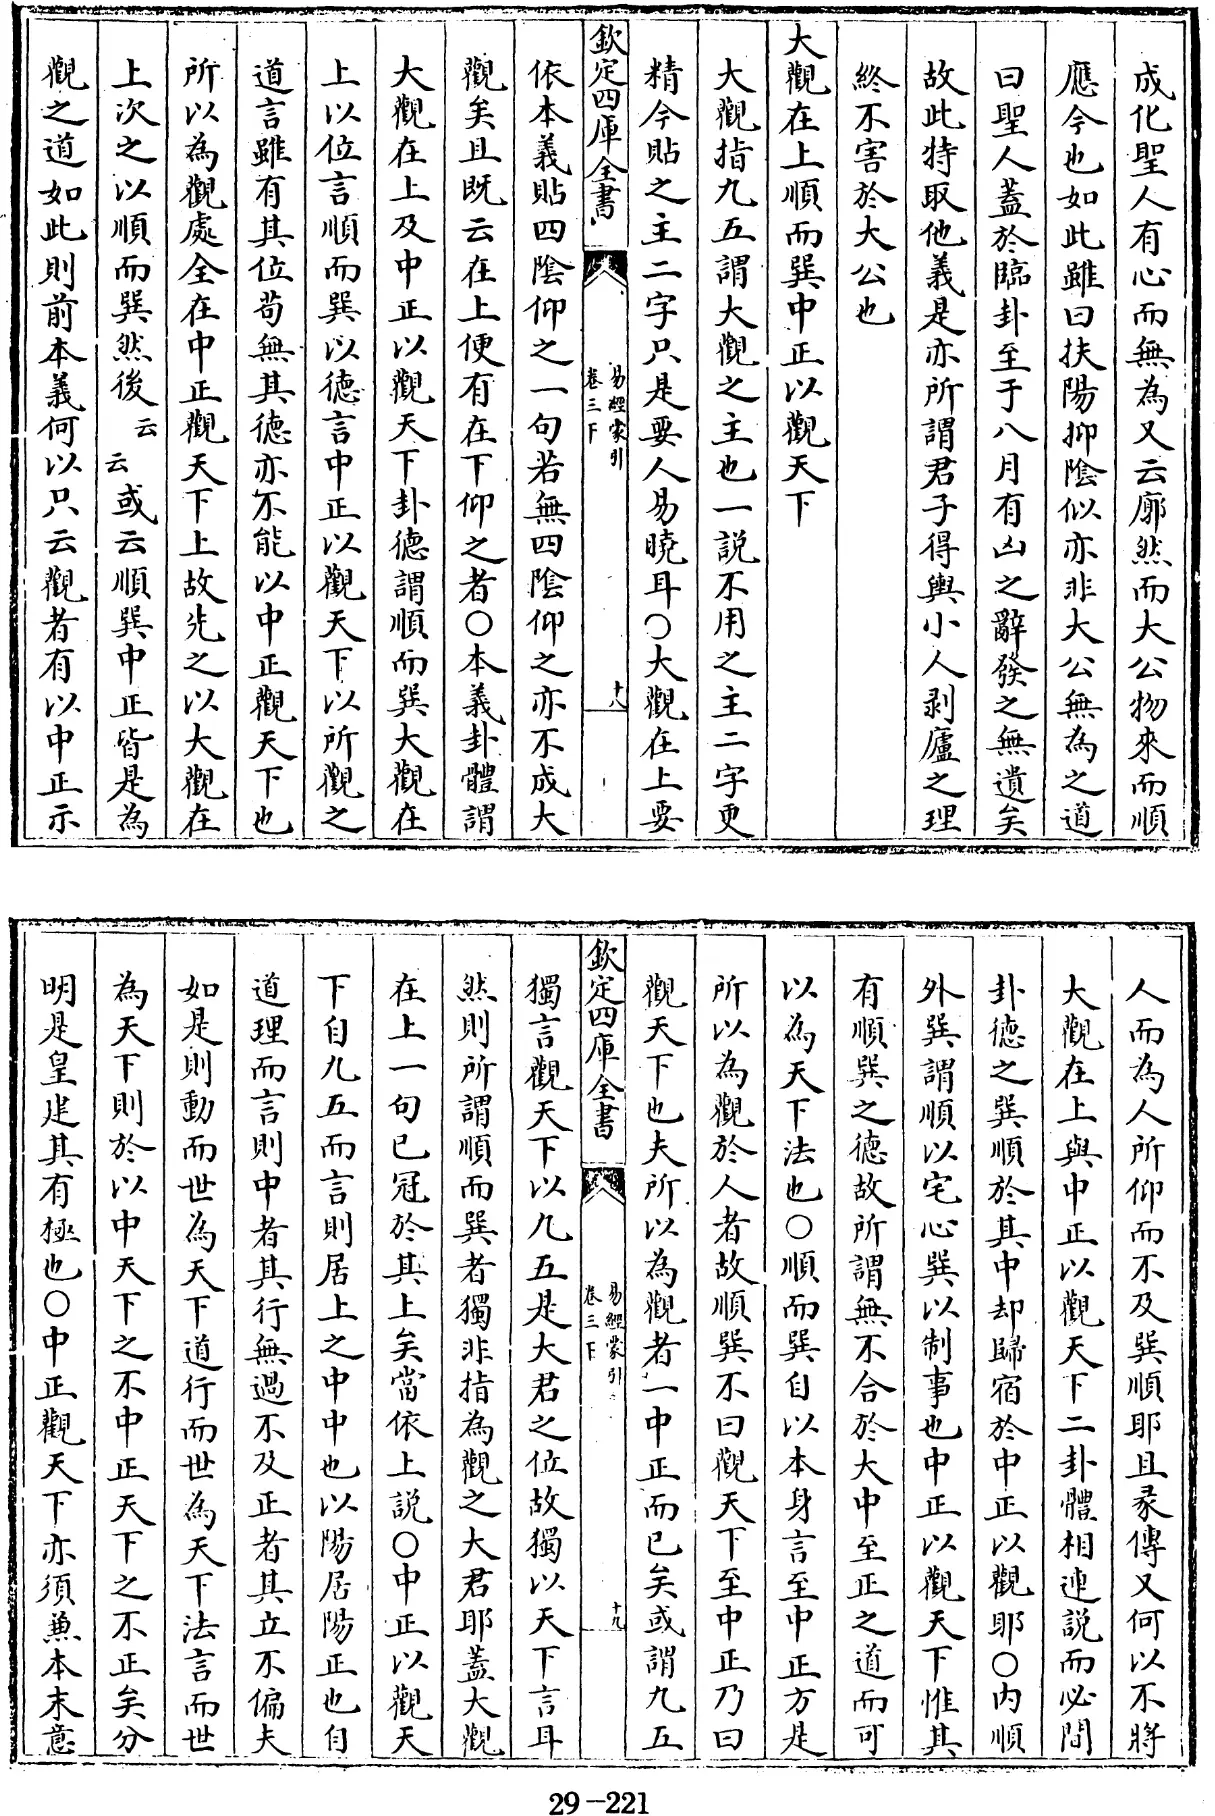 成化聖人有心而無為又云廓然而大公物來而順
應今也如此雖曰扶陽抑陰似亦非大公無為之道
曰聖人蓋於臨卦至于八月有凶之辭發之無遺矣
故此特取他義是亦所謂君子得輿小人剥廬之理
終不害於大公也
大觀在上順而巽中正以觀天下
大觀指九五謂大觀之主也一説不用之主二字更
精今貼之主二字只是要人易曉耳○大觀在上要
欽定四庫全書
易經蒙引
卷三下
十八
依本義貼四陰仰之一句若無四陰仰之亦不成大
觀矣且既云在上便有在下仰之者○本義卦體謂
大觀在上及中正以觀天下卦德謂順而巽大觀在
上以位言順而巽以德言中正以觀天下以所觀之
道言雖有其位苟無其德亦不能以中正觀天下也
所以為觀處全在中正觀天下上故先之以大觀在
上次之以順而巽然後云云或云順巽中正皆是為
觀之道如此則前本義何以只云觀者有以中正示
人而為人所仰而不及巽順耶且彖傳又何以不將
大觀在上與中正以觀天下二卦體相連説而必間
卦德之巽順於其中却歸宿於中正以觀耶○内順
外巽謂順以宅心巽以制事也中正以觀天下惟其
有順巽之德故所謂無不合於大中至正之道而可
以為天下法也○順而巽自以本身言至中正方是
所以為觀於人者故順巽不曰觀天下至中正乃曰
觀天下也夫所以為觀者一中正而已矣或謂九五
欽定四庫全書
易經蒙引
卷三下
十九
獨言觀天下以九五是大君之位故獨以天下言耳
然則所謂順而巽者獨非指為觀之大君耶蓋大觀
在上一句已冠於其上矣當依上説○中正以觀天
下自九五而言則居上之中中也以陽居陽正也自
道理而言則中者其行無過不及正者其立不偏夫
如是則動而世為天下道行而世為天下法言而世
為天下則於以中天下之不中正天下之不正矣分
明是皇建其有極也○中正觀天下亦須兼本末意
29-221